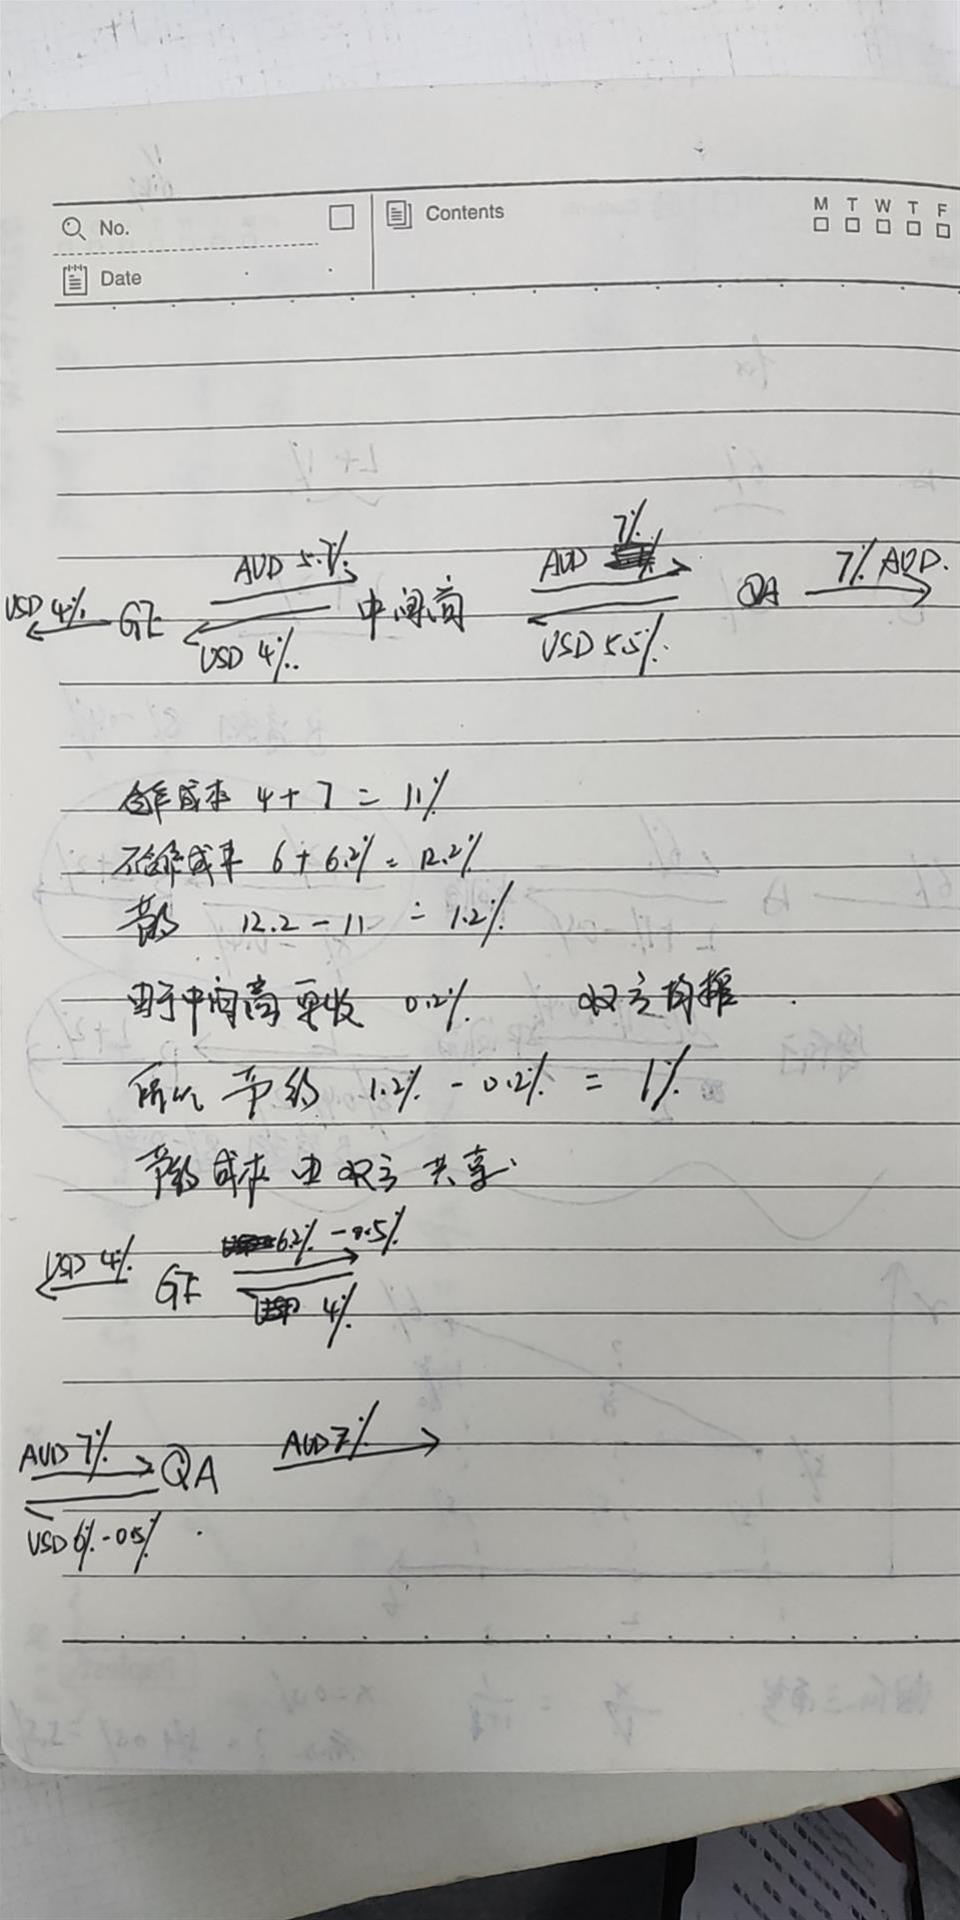 No.
Contents
M T W T F
Date
AUD 5.7%
AUD 7%
7% AUD.
USD 4%
GE
中间商
QA
USD 4%
USD 5.5%
合作成本 4+7 = 11%
不合作成本 6+6.2% = 12.2%
节约 12.2-11 = 1.2%
由于中间商要收 0.2% 双方均摊
所以 节约 1.2% - 0.2% = 1%
节约成本由双方共享
USD 4%
GE
6.2% -0.5%
4%
AUD 7%
QA
AUD 7%
USD 6% -0.5%